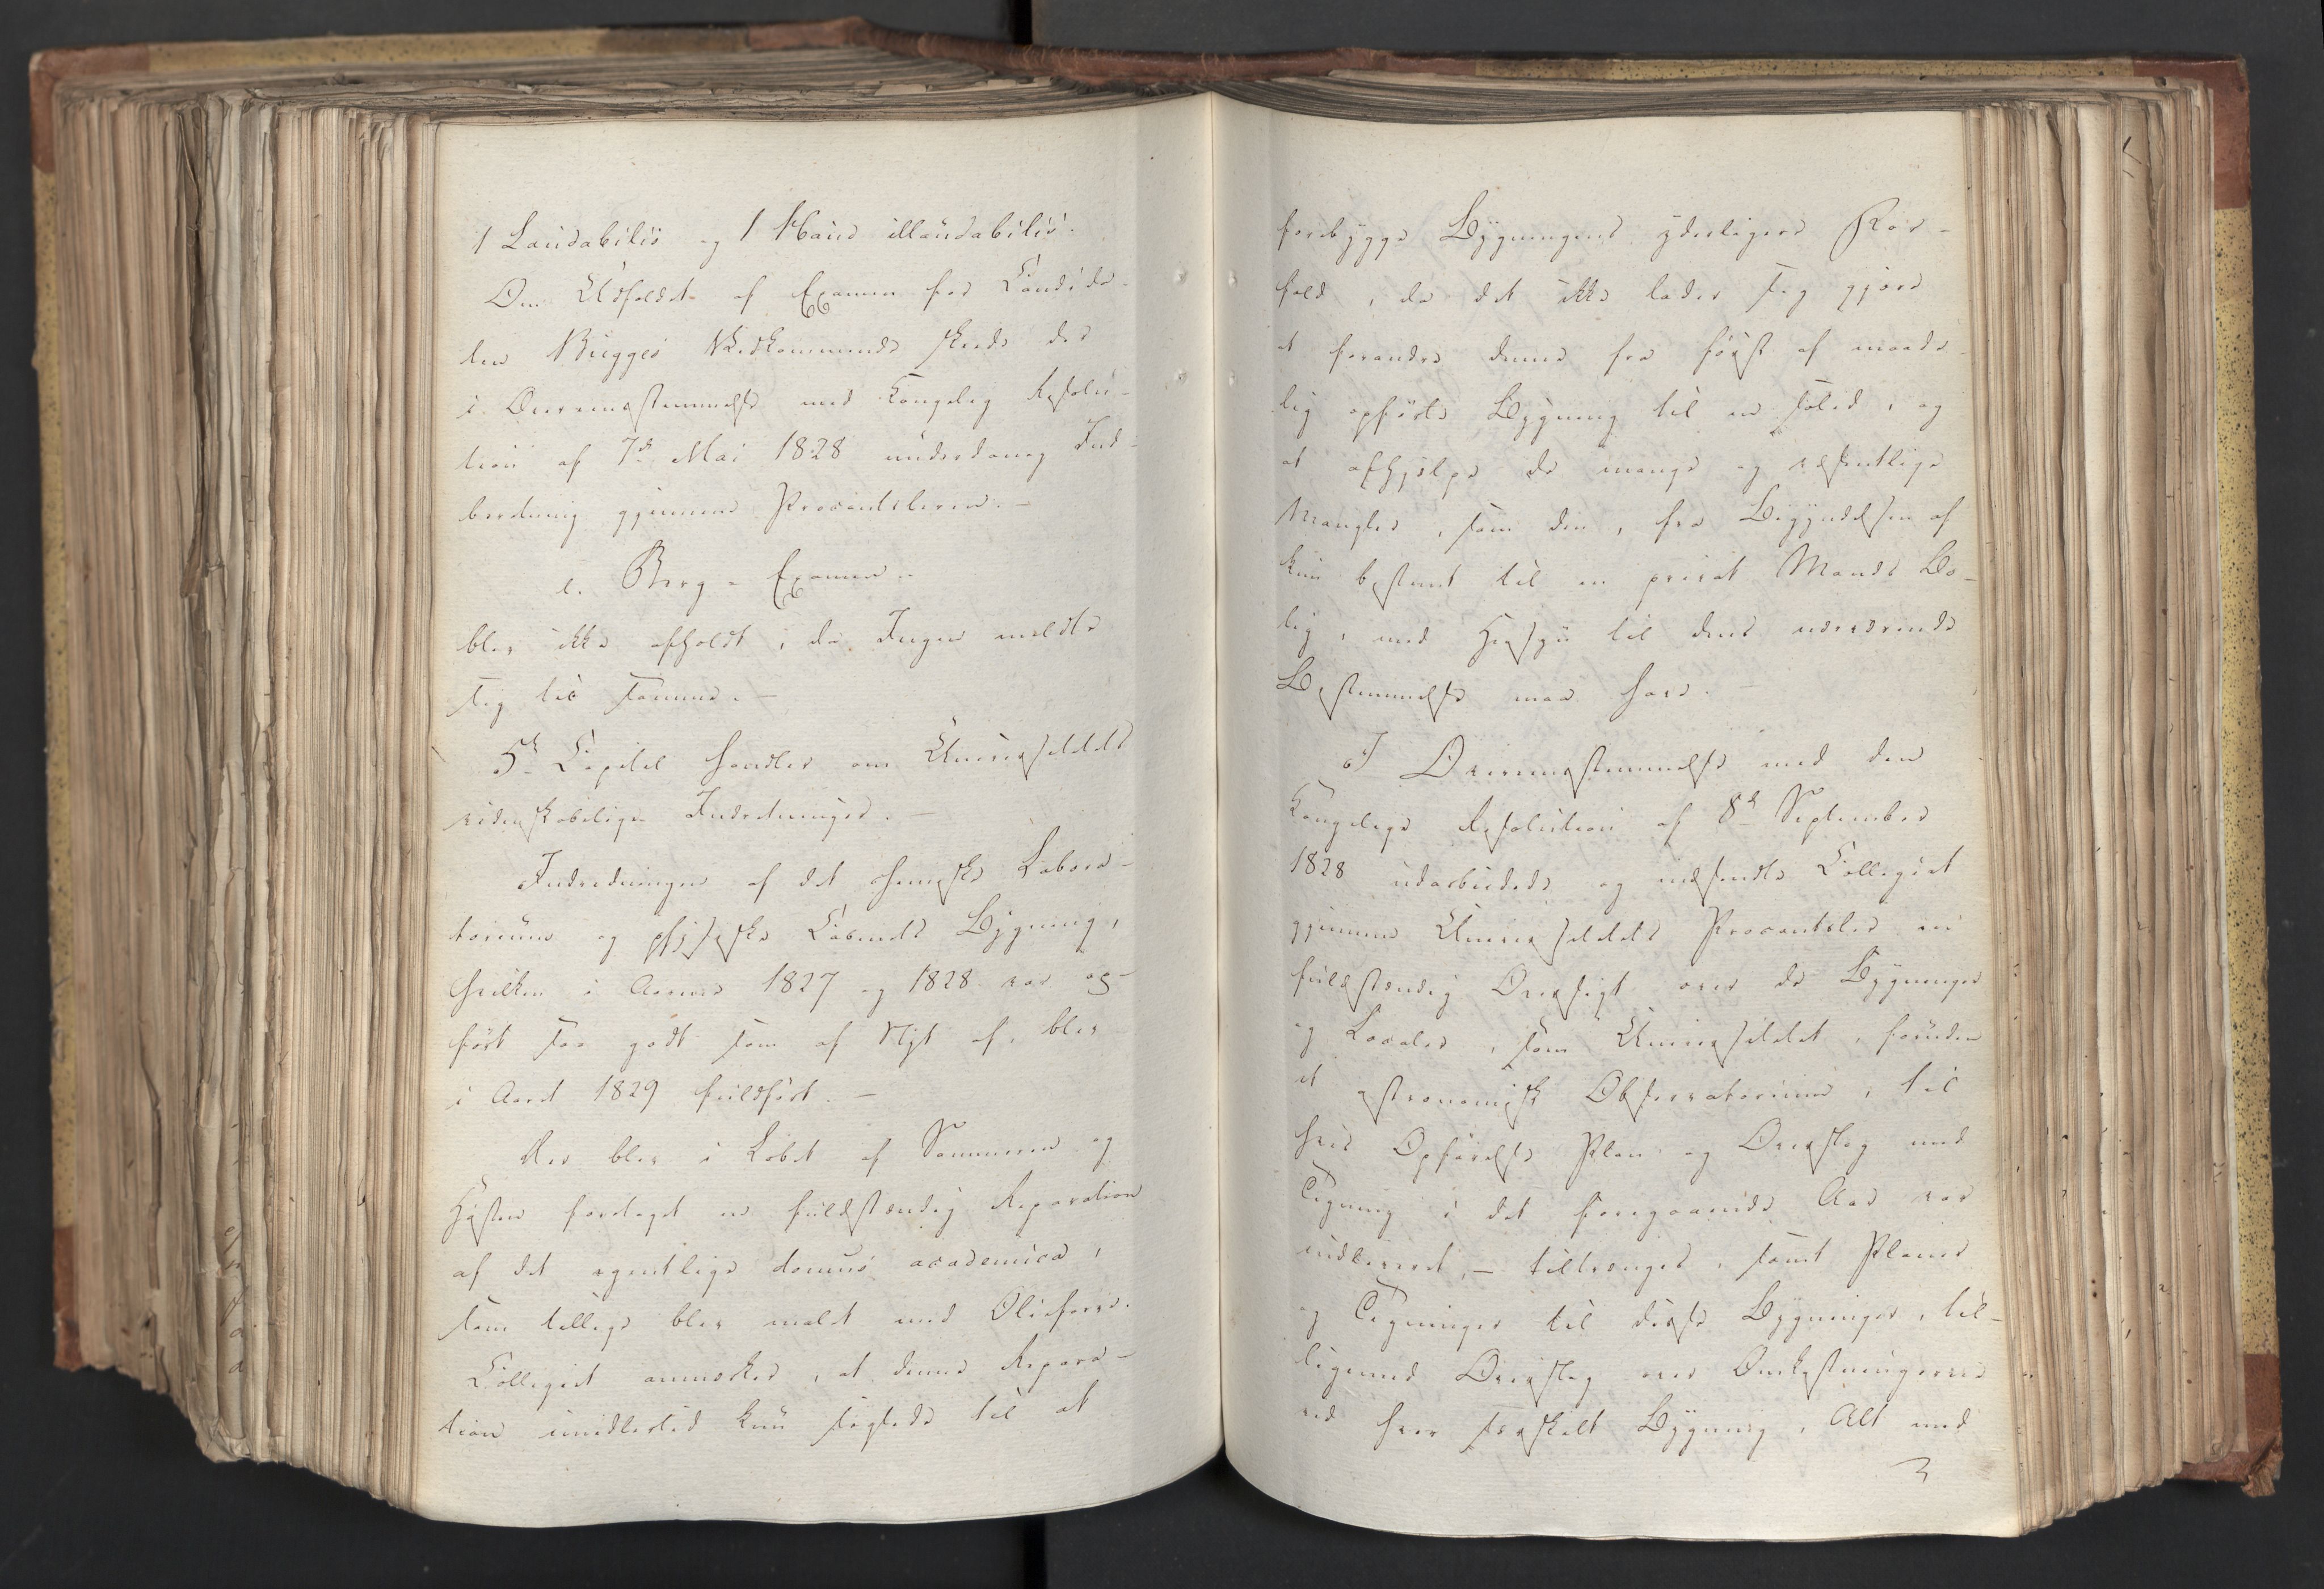 1 Laudabilis og 1 Haud illaudabilis.
Om Udfaldet af Examen for Candida-
ten Bugges Vedkommende skede der
i Overeensstemmelse med Kongelig Resolu-
tion af 7de Mai 1828 underdanig Ind-
beretning gjennem Procantsleren. -
e. Berg-Examen.
blev ikke afholdt, da Ingen meldte
sig til samme. -
5te Capitel handler om Universitetets
videnskabelige Indretninger. -
Indredningen af det chemiske Labora-
torium og physiske Cabinets Bygning,
hvilken i Aarene 1827 og 1828 var op-
ført saa godt som af Nyt af, blev
i Aaret 1829 fuldført. -
Der blev i Løbet af Sommeren og
Høsten foretaget en fuldstændig Reparation
af det egentlige domus academica,
som tillige blev malet med Oliefarve.
Collegiet anmærker, at denne Repara-
tion imidlertid kun sigtede til at
forebygge Bygningens yderligere For-
fald, da det ikke lader sig gjøre
at forandre denne fra først af maade-
lig opførte Bygning til en solid, og
at afhjelpe de mange og væsentlige
Mangler, som den, fra Begyndelsen af
kun bestemt til en privat Mands Bo-
lig, med Hensyn til dens nærværende
Bestemmelse maa have. -
I Overeensstemmelse med den
Kongelige Resolution af 8de September
1828 udarbeidede og indsendte Collegiet
gjennem Universitetets Procantsler en
fuldstændig Oversigt over de Bygninger
og Localer, som Universitetet, foruden
et astronomisk Observatorium, til
hvis Opførelse Plan og Overslag med
Tegning i det foregaaende Aar var
indleveret, - tiltrænger, samt Planer
og Tegninger til disse Bygninger, til-
ligemed Overslag over Omkostningerne
ved hver særskilt Bygning, Alt med